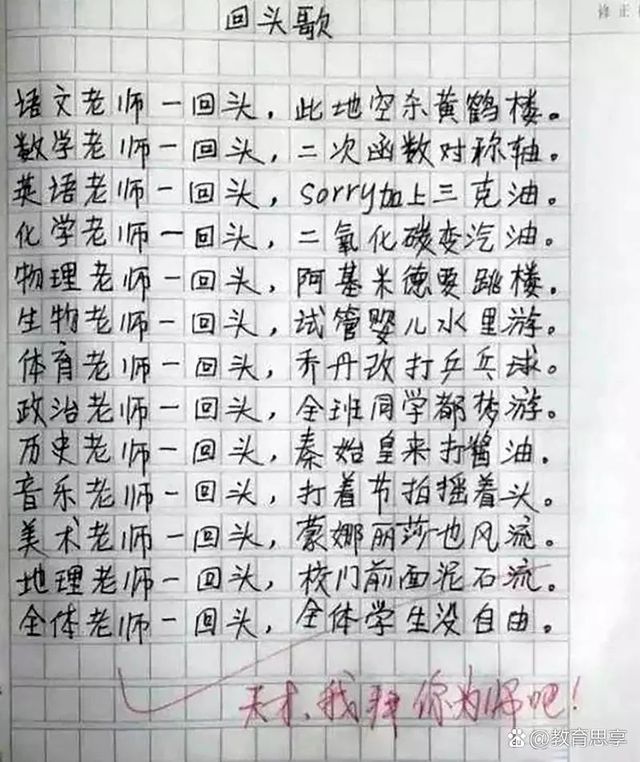 修正
回头歌
语文老师一回头，此地空杀黄鹤楼。
数学老师一回头，二次函数对称轴。
英语老师一回头，sorry加上三克油。
化学老师一回头，二氧化碳变汽油。
物理老师一回头，阿基米德要跳楼。
生物老师一回头，试管婴儿水里游。
体育老师一回头，乔丹改打乒乓球。
政治老师一回头，全班同学都梦游。
历史老师一回头，秦始皇来打酱油。
音乐老师一回头，打着节拍摇着头。
美术老师一回头，蒙娜丽莎也风流。
地理老师一回头，校门前面泥石流。
全体老师一回头，全体学生没自由。
天才、我拜你为师吧！
@教育思享